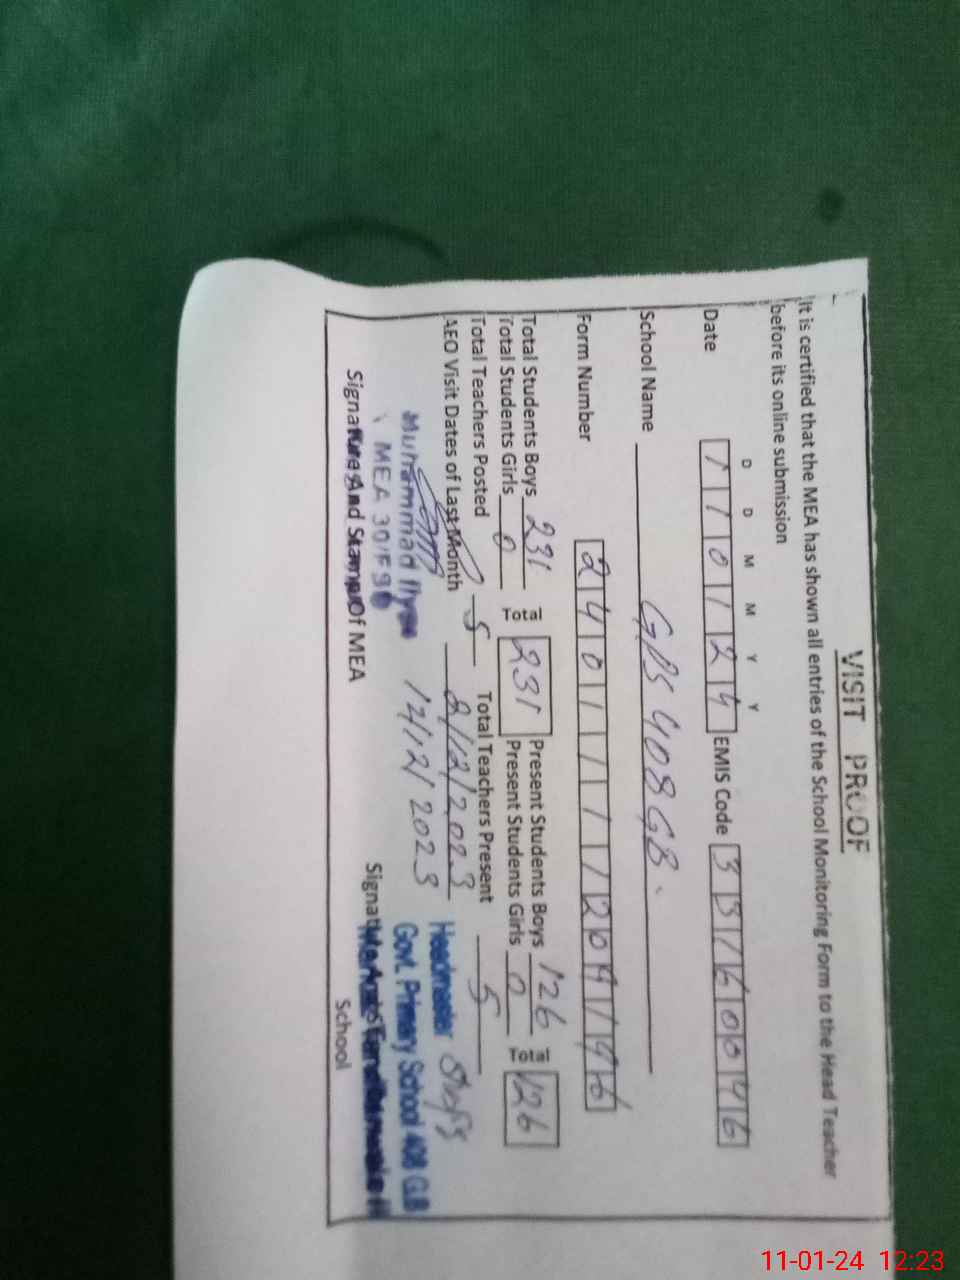 VISIT PROOF
It is certified that the MEA has shown all entries of the School Monitoring Form to the Head Teacher
before its online submission
D D M M Y Y
Date 110124 EMIS Code 33160046
School Name GPS 408 GB.
Form Number
Total Students Boys 231 Total 231 Present Students Boys 126 Total 126
Total Students Girls 0 Present Students Girls 0
Total Teachers Posted 5 Total Teachers Present 5
AEO Visit Dates of Last Month 8/12/2023
12/12/2023
Muhammad Ilyas
MEA 30/FSD
Signature And Stamp Of MEA
Headmaster
Govt. Primary School 408 G.B
School
11-01-24 12:23